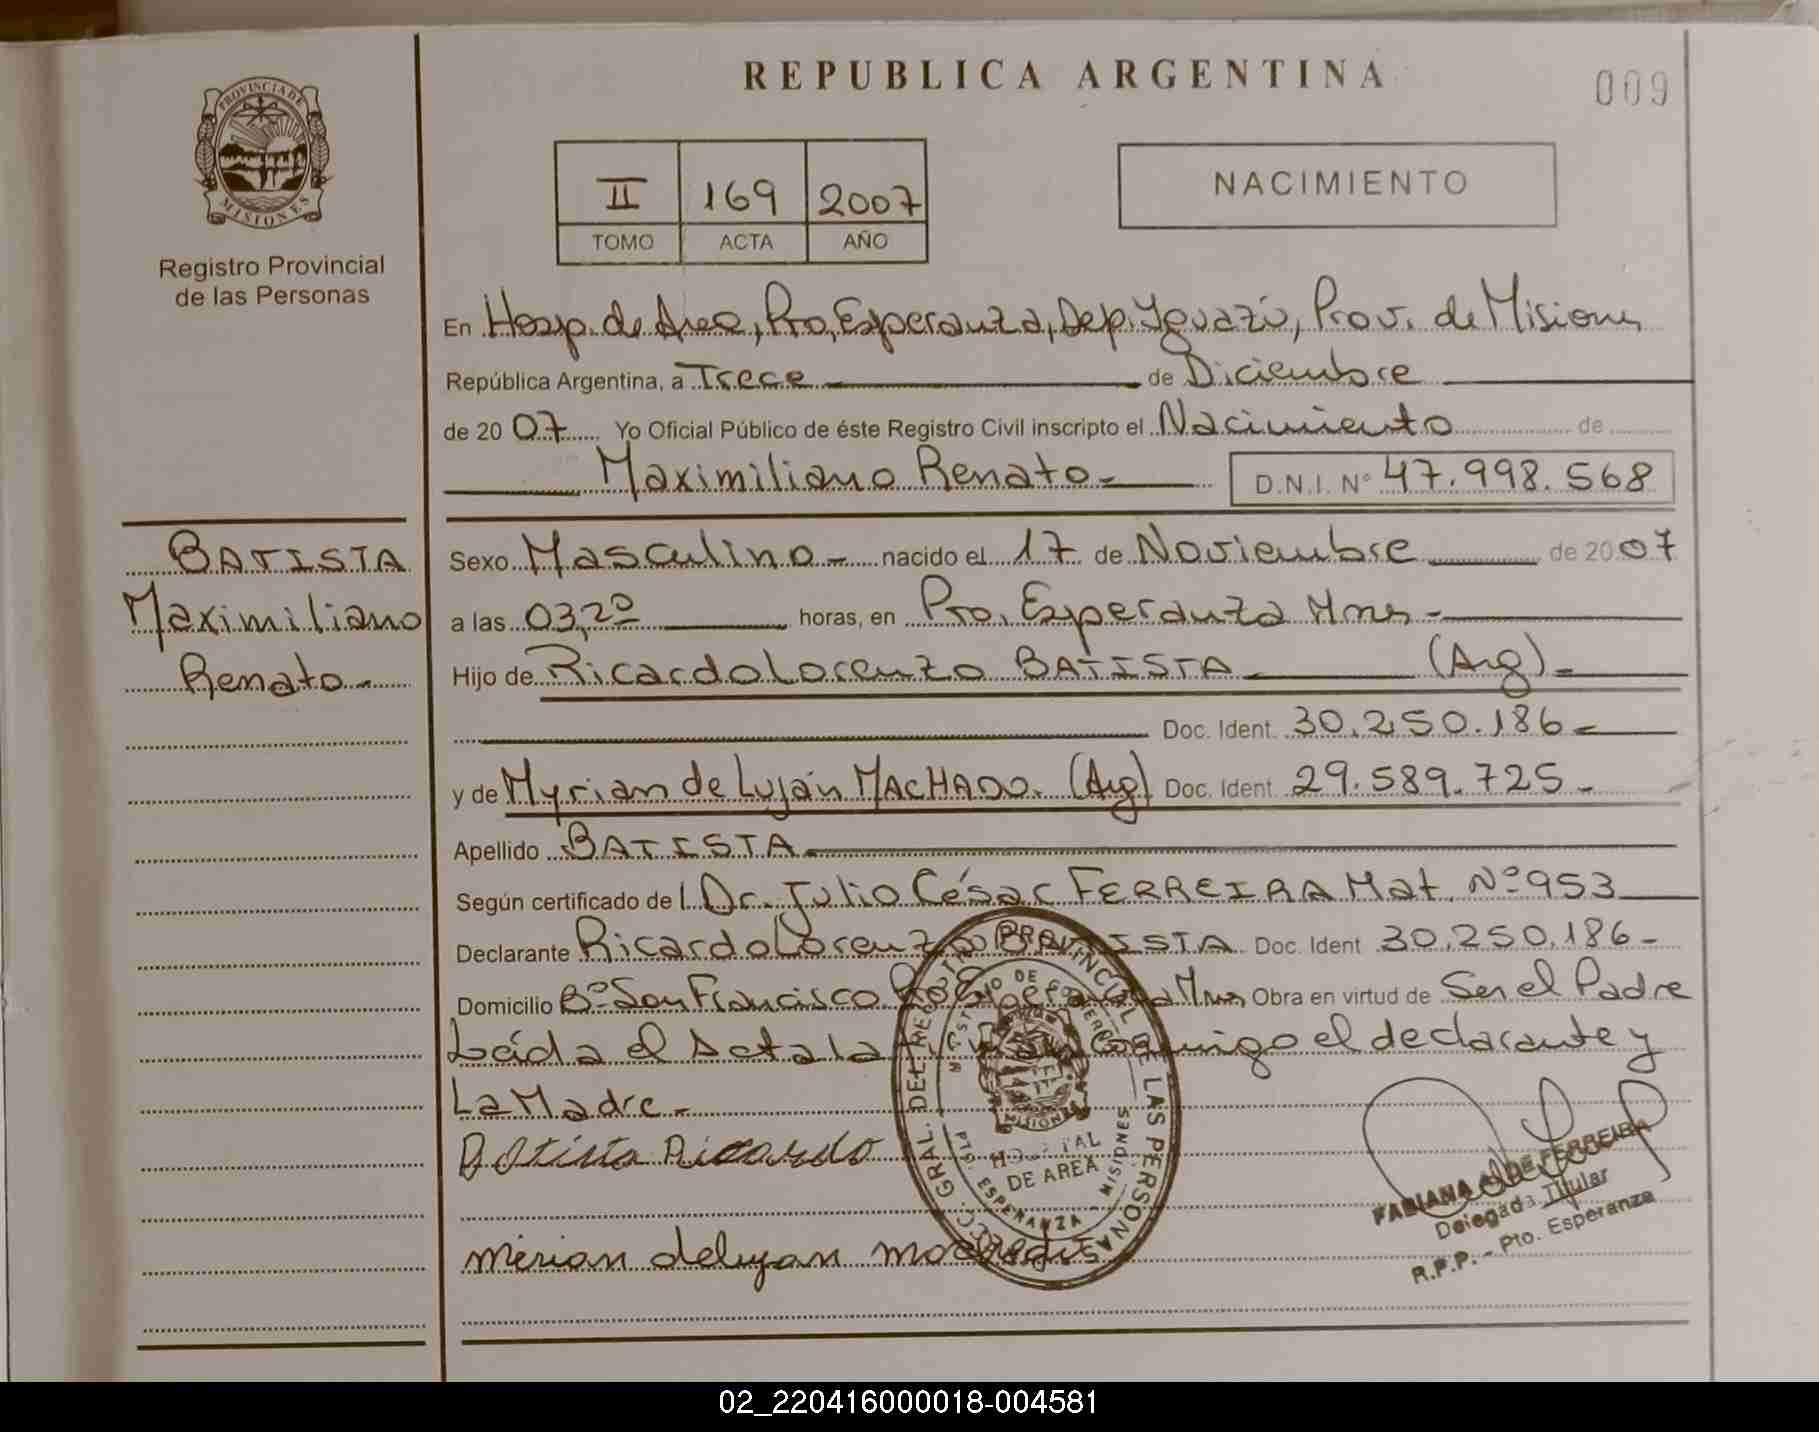 REPUBLICA ARGENTINA
009
PROVINCIA DE
MISIONES
Registro Provincial
de las Personas
II 169 2007
TOMO ACTA AÑO
NACIMIENTO
En Hosp. de Area, Pto. Esperanza, Dep. Iguazú, Prov. de Misiones
República Argentina, a Trece de Diciembre
de 2007 Yo Oficial Público de éste Registro Civil inscripto el Nacimiento de
Maximiliano Renato- D.N.I. Nº 47.998.568
BATISTA
Maximiliano
Renato-
Sexo Masculino- nacido el 17 de Noviembre de 2007
a las 03,20 horas, en Pto. Esperanza Mnes-
Hijo de Ricardo Lorenzo BATISTA (Arg)-
Doc. Ident. 30.250.186-
y de Myrian de Luján MACHADO. (Arg) Doc. Ident. 29.589.725-
Apellido BATISTA
Según certificado del Dr. Julio César FERREIRA Mat. Nº 953
Declarante Ricardo Lorenzo BATISTA Doc. Ident 30.250.186-
Domicilio Bº San Francisco Pto Esperanza Mnes Obra en virtud de Ser el Padre
Leída el Acta la conmigo el declarante y
La Madre-
Batista Ricardo
merian delujan
DIRECC. GRAL. DEL REGISTRO PROVINCIAL DE LAS PERSONAS
MINISTERIO DE GOBIERNO
MISIONES
HOSPITAL
DE AREA
PTO. ESPERANZA - MISIONES
FABIANA A. DE FERREIRA
Delegada Titular
R.P.P. - Pto. Esperanza
02_220416000018-004581